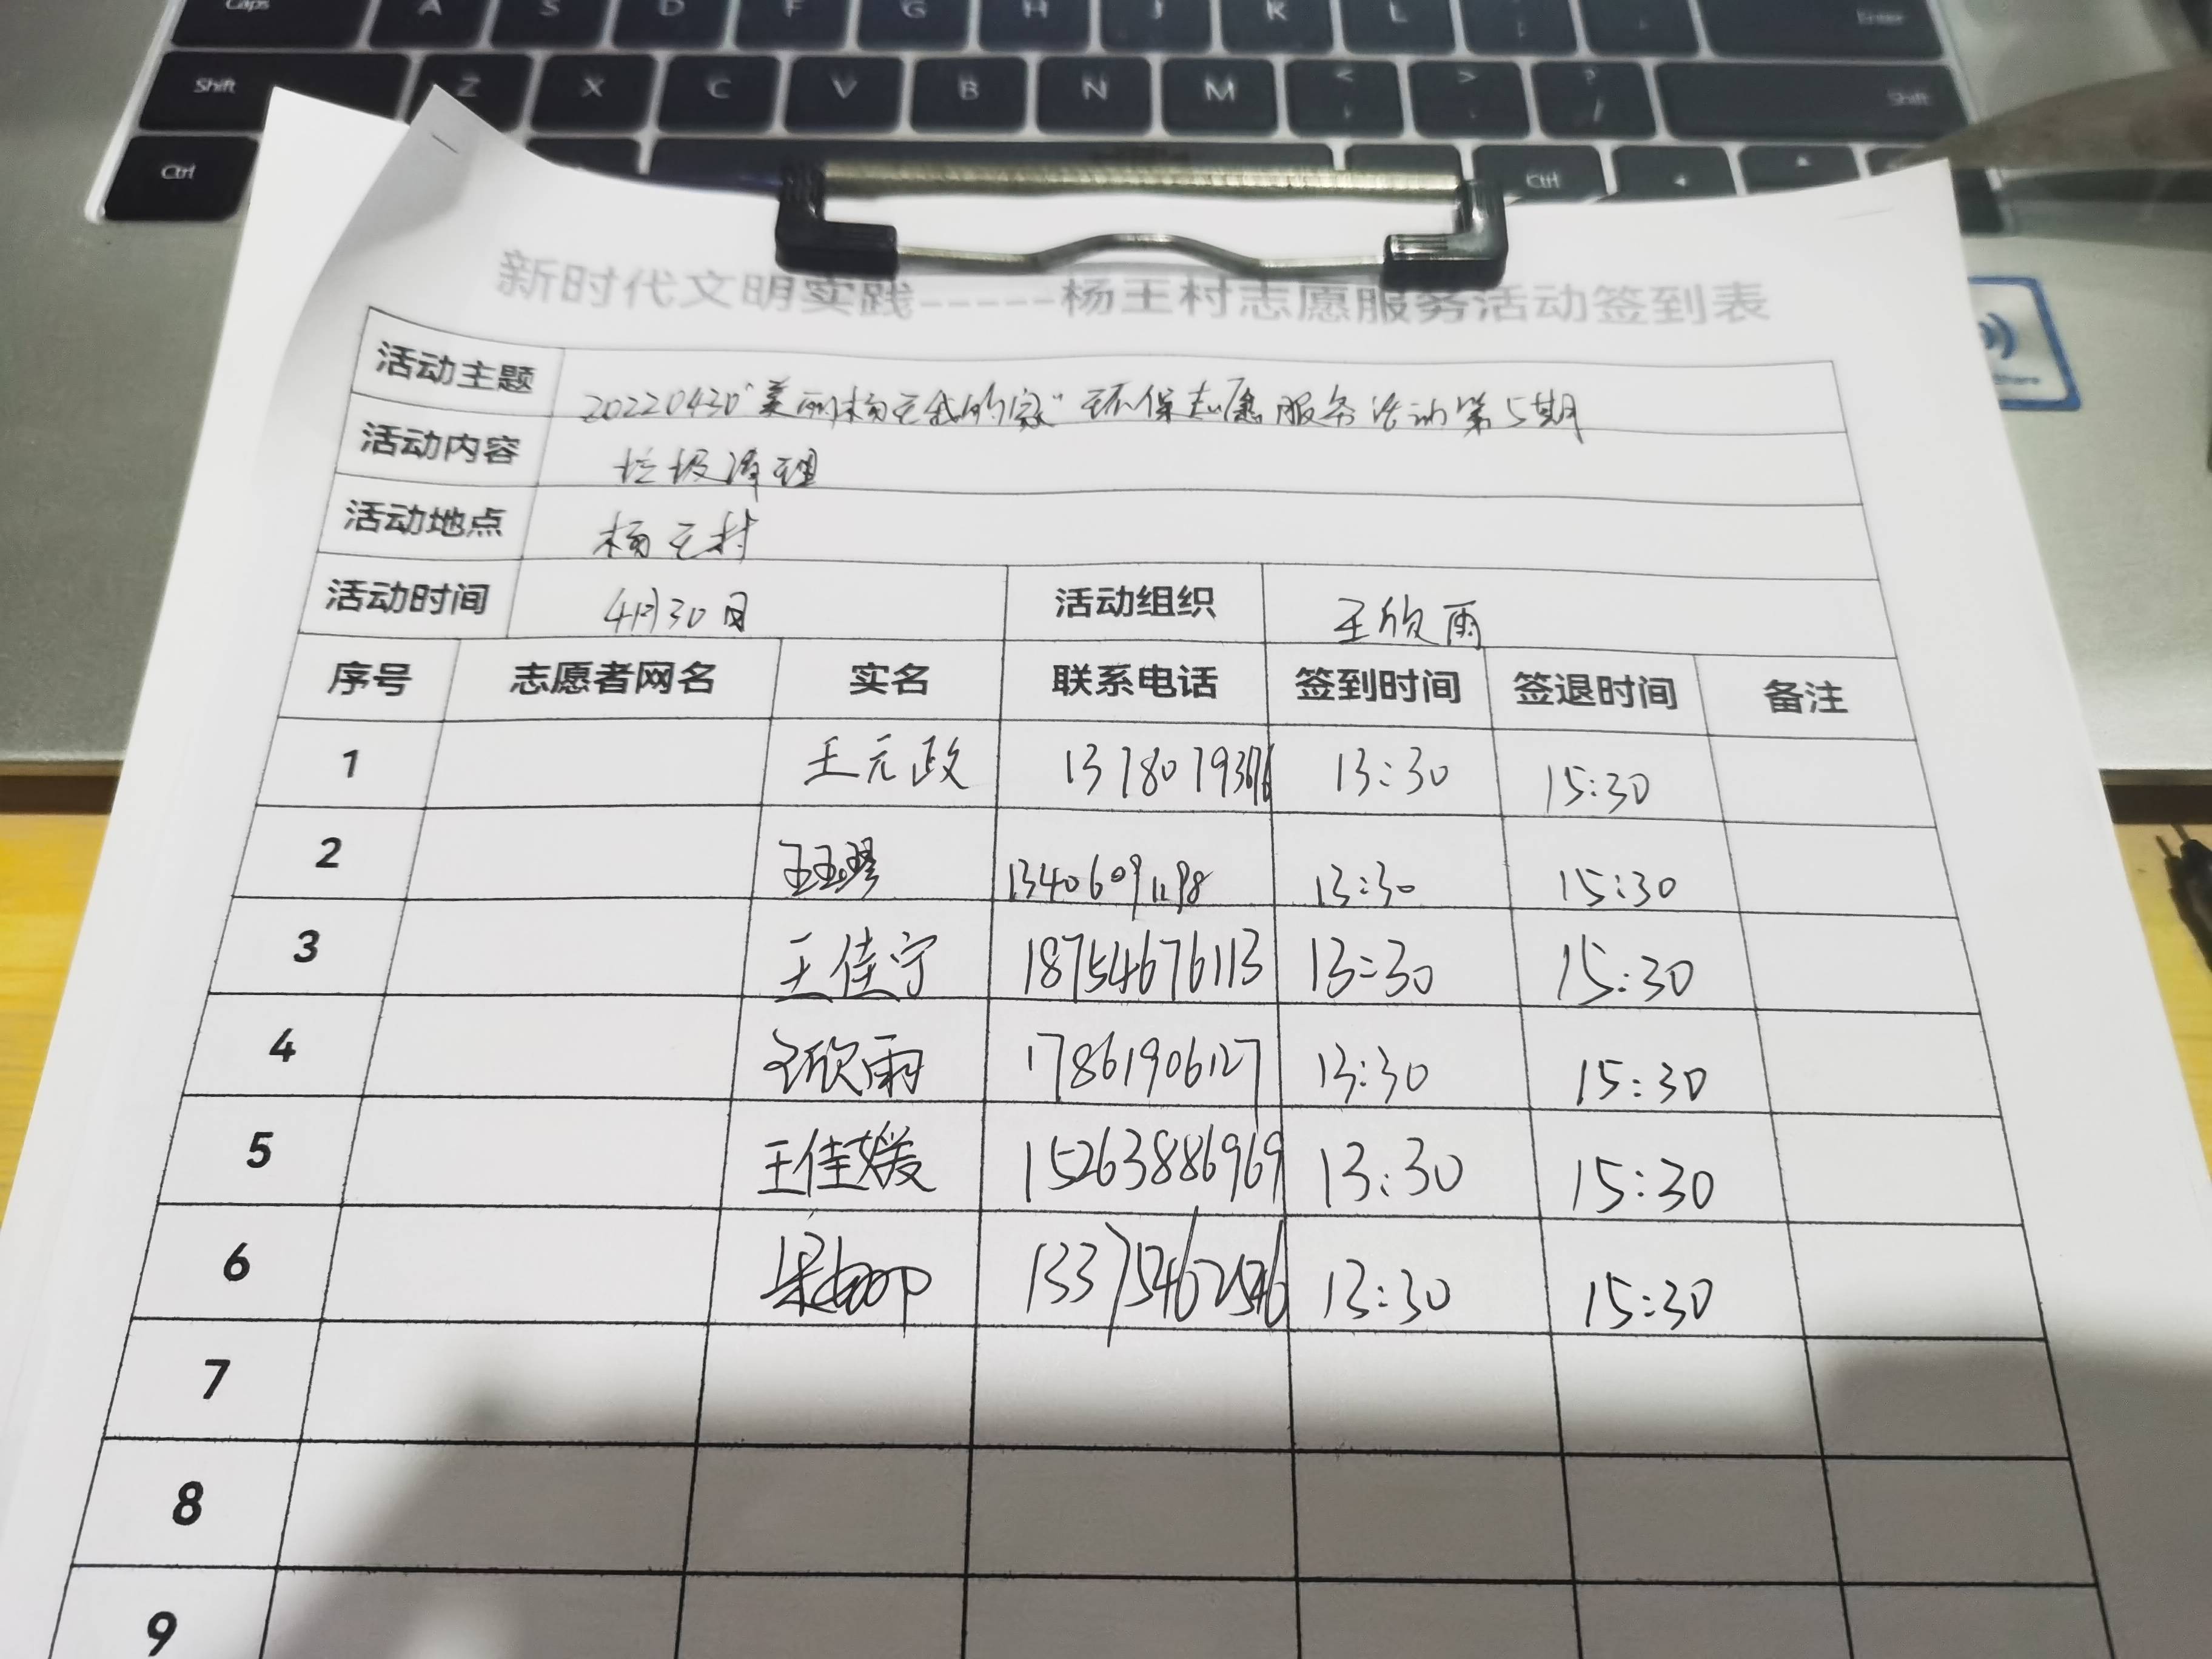 Caps A S D F G H J K L Enter
Shift Z X C V B N M < > ? / Shift
Ctrl Ctrl
新时代文明实践-----杨王村志愿服务活动签到表
活动主题 20220430"美丽杨王我的家"环保志愿服务活动第5期
活动内容 垃圾清理
活动地点 杨王村
活动时间 4月30日 活动组织 王欣雨
序号 志愿者网名 实名 联系电话 签到时间 签退时间 备注
1 王元政 13:30 15:30
2 13:30 15:30
3 王佳宁 18754676113 13:30 15:30
4 王欣雨 17861906127 13:30 15:30
5 王佳媛 15263886969 13:30 15:30
6 13375462546 13:30 15:30
7
8
9